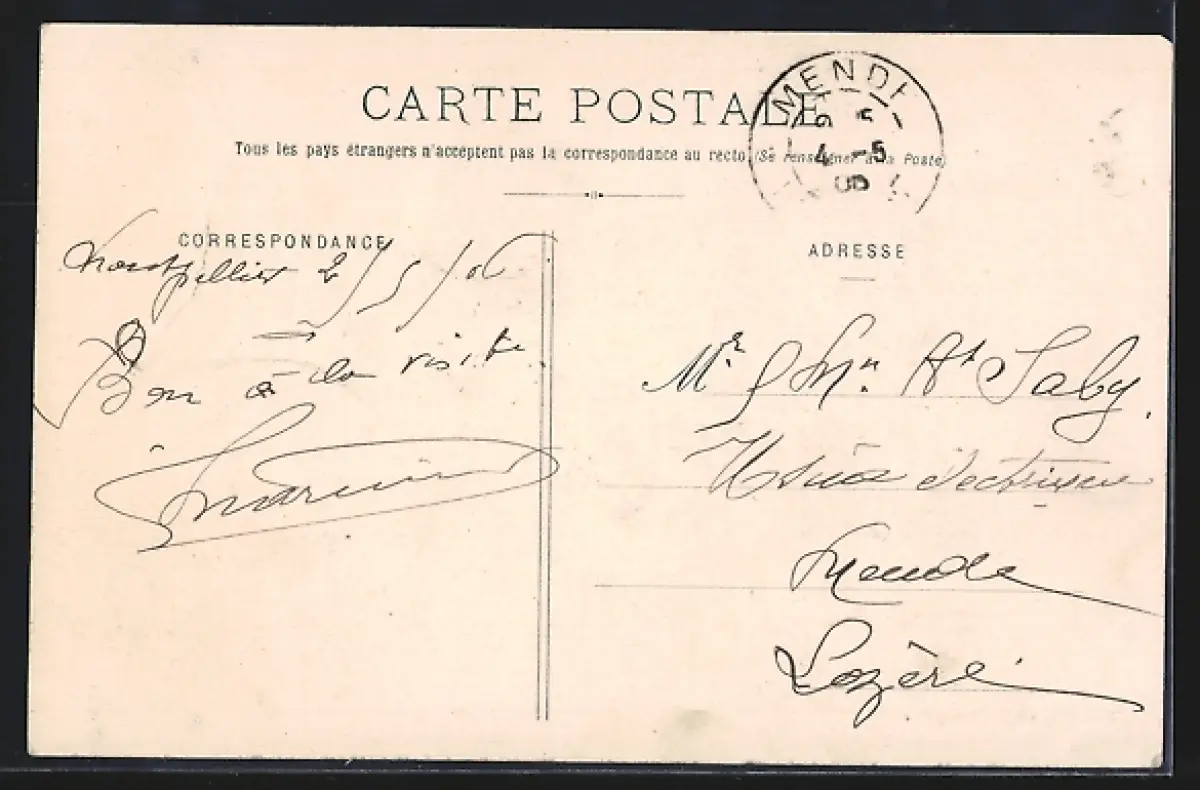 CARTE POSTALE
Tous les pays étrangers n'acceptent pas la correspondance au recto (Se renseigner à la Poste)
MENDE
5 -5
06
CORRESPONDANCE
Montpellier 2/5/06
Bon à la visite
ADRESSE
Mr & Mme At Saby.
Usine électrique
Mende
Lozère